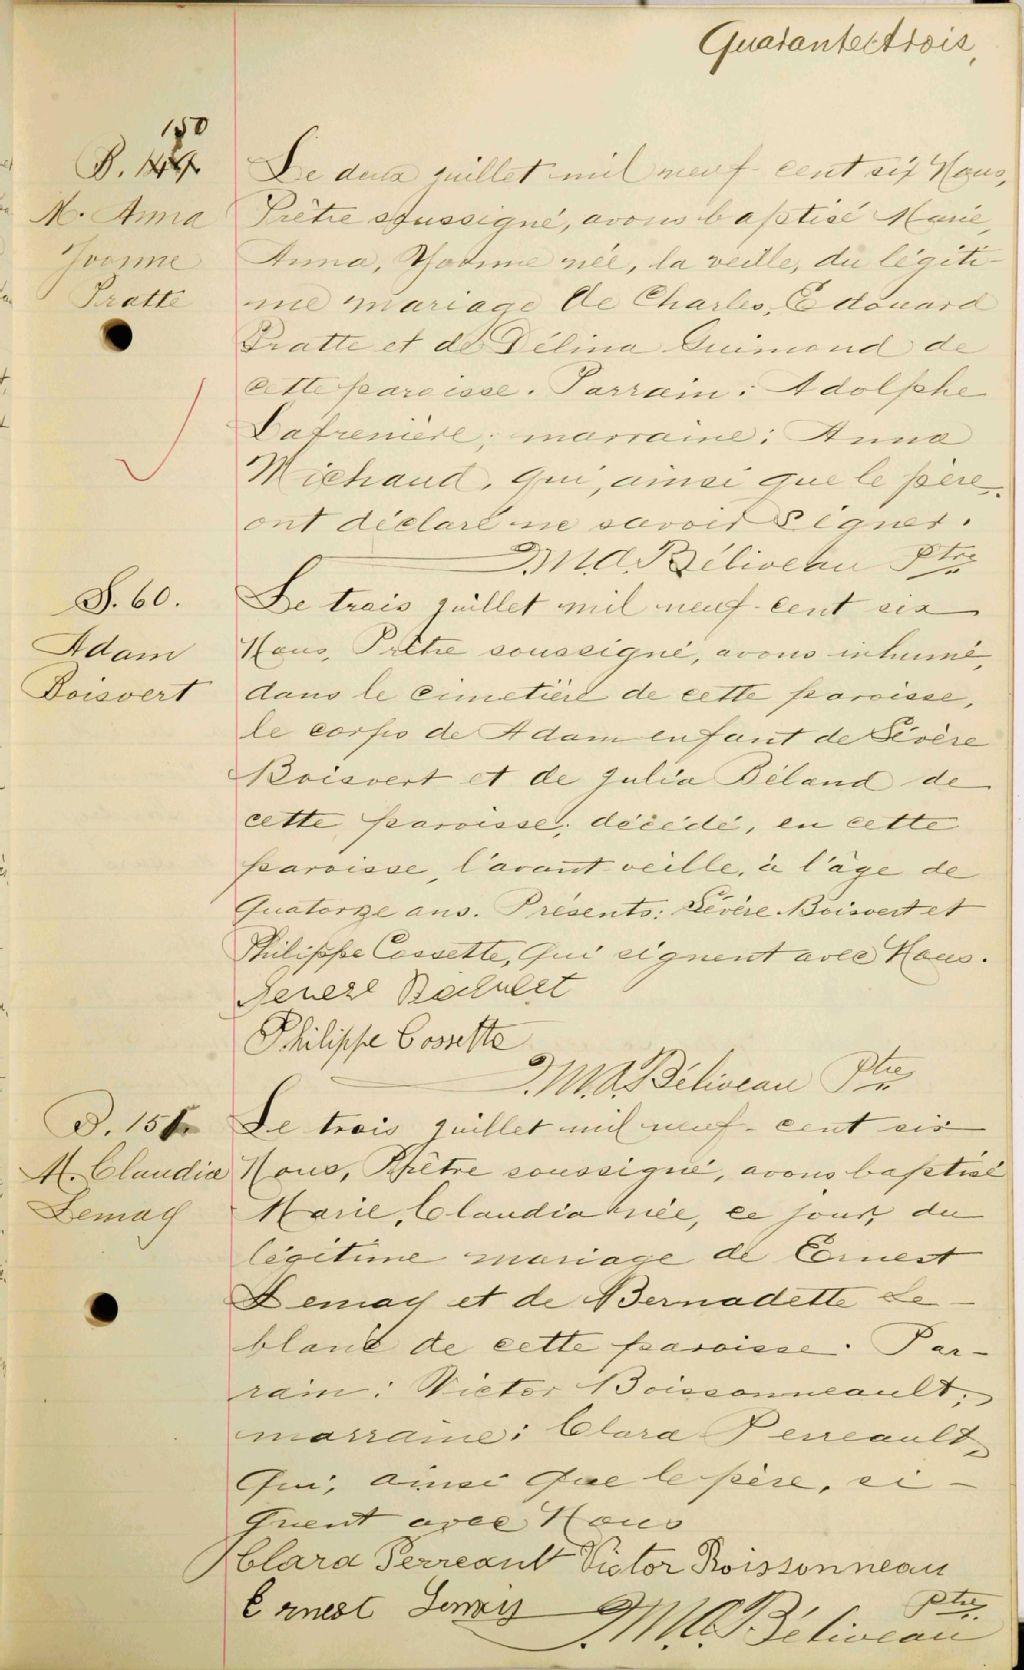 Quarante-trois,
150
B. 149.
M. Anna
Yvonne
Pratte
Le deux juillet mil neuf cent six Nous,
Prêtre soussigné, avons baptisé Marie,
Anna, Yvonne née, la veille, du légiti-
me mariage de Charles, Edouard
Pratte et de Délina Guimond de
cette paroisse. Parrain: Adolphe
Lafrenière; marraine: Anna
Michaud, qui, ainsi que le père,
ont déclaré ne savoir signer.
M.A. Béliveau Ptre
S. 60.
Adam
Boisvert
Le trois juillet mil neuf-cent six
Nous, Prêtre soussigné, avons inhumé,
dans le cimetière de cette paroisse,
le corps de Adam enfant de Sévère
Boisvert et de Julia Béland de
cette paroisse; décédé, en cette
paroisse, l'avant veille, à l'âge de
quatorze ans. Présents: Sévère Boisvert et
Philippe Cossette, qui signent avec Nous.
Philippe Cossette
M.A. Béliveau Ptre
B. 151.
M. Claudia
Lemay
Le trois juillet mil neuf-cent six
Nous, Prêtre soussigné, avons baptisé
Marie, Claudia née, ce jour, du
légitime mariage de Ernest
Lemay et de Bernadette Le-
blanc de cette paroisse. Par-
rain: Victor Boissonneault;
marraine: Clara Perreault,
qui, ainsi que le père, si-
gnent avec Nous
Clara Perreault Victor Boissonneau
Ernest Lemay
M.A. Béliveau Ptre